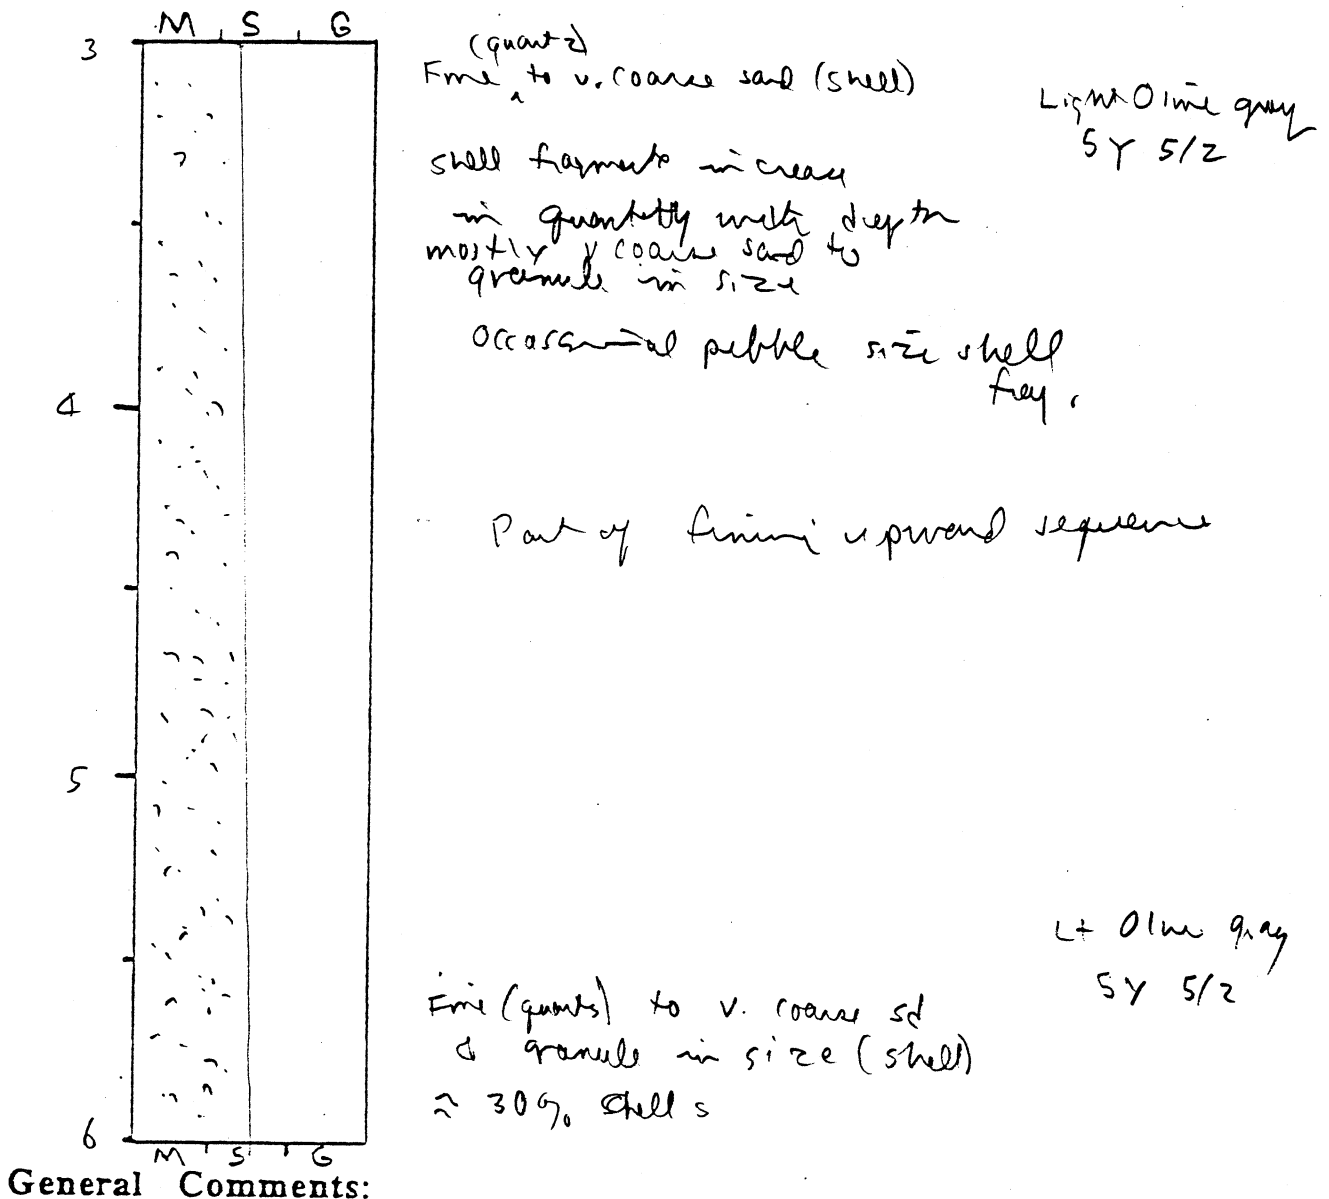 M S G
3
(quartz)
Fine ^ to v. coarse sand (shell)
Light Olive gray
5Y 5/2
shell fragments increase
in quantity with depth
mostly v coarse sand to
granule in size
Occassional pebble size shell
frag.
4
Part of fining upward sequence
5
Lt Olive gray
5Y 5/2
Fine (quartz) to v. coarse sd
& granule in size (shell)
≈ 30% shells
6
M S G
General Comments: